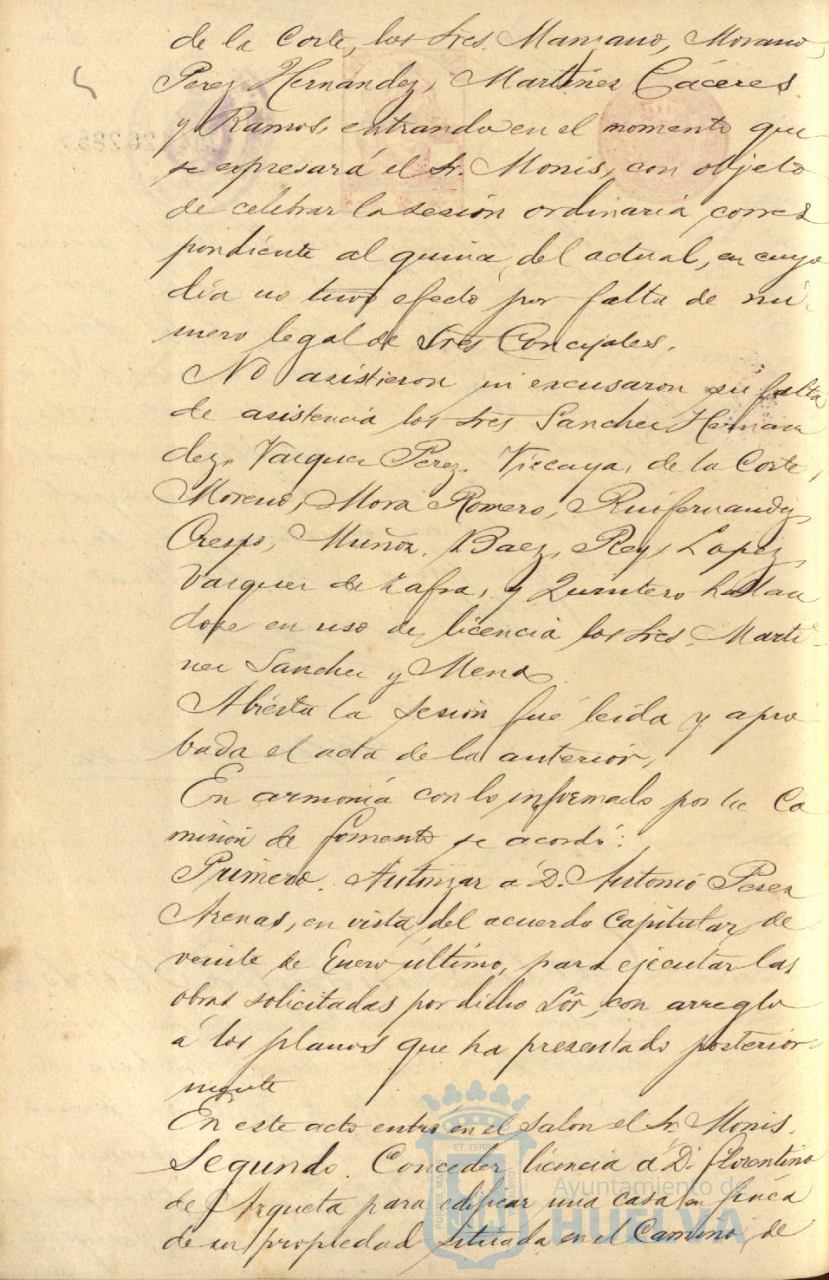 de la Corte, los Sres. Manzano, Morano,
Perez Hernandez, Martinez Cáceres
y Ramos, entrando en el momento que
se expresará el Sr. Monis, con objeto
de celebrar la sesión ordinaria, corres
pondiente al quince del actual, en cuyo
día no tuvo efecto por falta de nú-
mero legal de Sres Concejales.
No asistieron ni excusaron su falta
de asistencia los Sres Sanchez Hernan
dez, Vazquez Perez, Vizcaya, de la Corte,
Moreno, Mora Romero, Ruifernandez,
Crespo, Muñoz, Baez, Rey, Lopez,
Vazquez de Zafra, y Quintero hallan
dose en uso de licencia los Sres. Marti-
nez Sanchez y Mena.
Abierta la sesión fué leida y apro
bada el acta de la anterior,
En armonía con lo informado por la Co
misión de fomento se acordó:
Primero. Autorizar á D. Antonio Perez
Arenas, en vista del acuerdo Capitular, de
veinte de Enero último, para ejecutar las
obras solicitadas por dicho Sôr, con arreglo
á los planos que ha presentado posterior-
mente
En este acto entra en el salon el Sr. Monis.
Segundo. Conceder licencia á D. Florentino
de Arqueta para edificar una casa en finca
de su propiedad situada en el Camino de
Ayuntamiento de
HUELVA